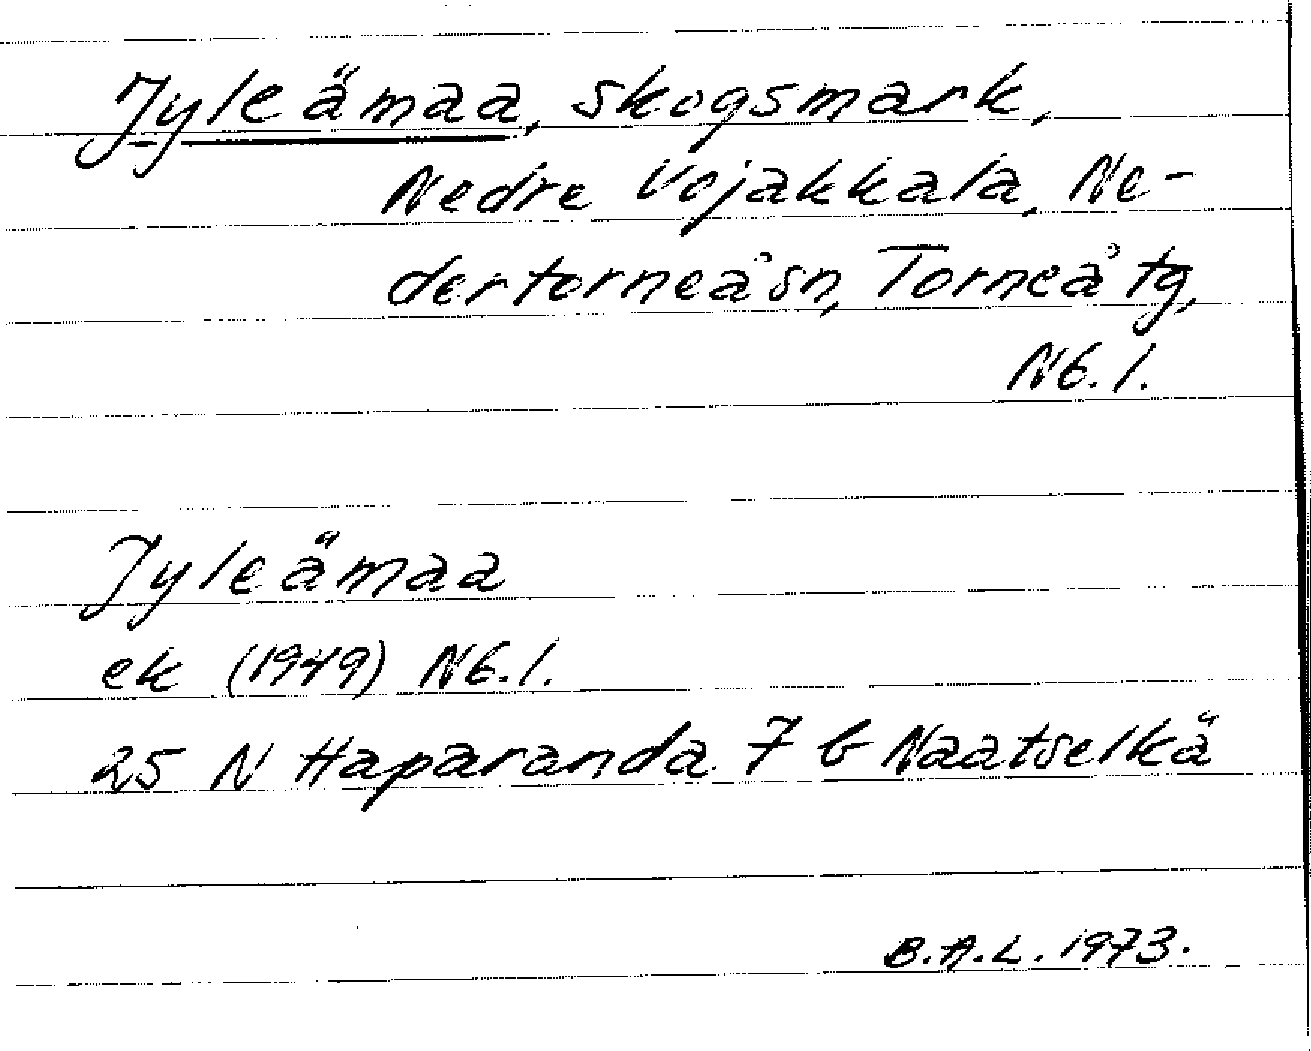 Jyleämaa, skogsmark,
Nedre Vojakkala, Ne-
dertorneå sn, Torneå tg,
Nb. l.
Jyleämaa
ek (1949) Nb. l.
25 N Haparanda 7 b Naatselkä
B.A.L. 1973.